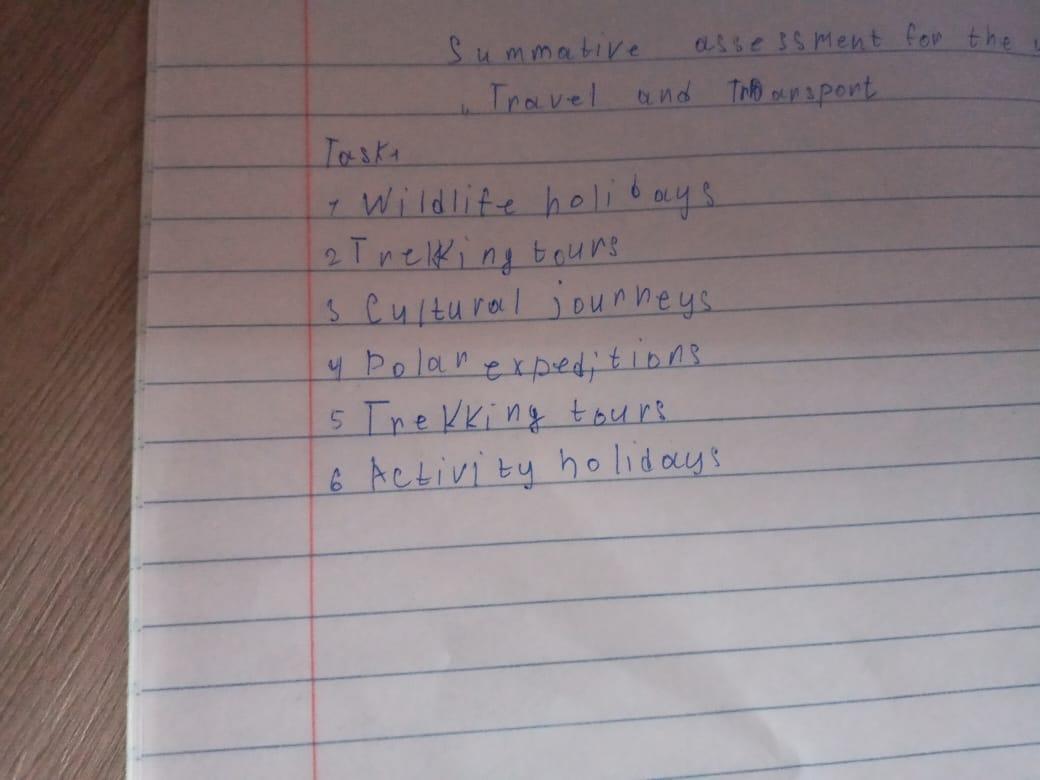 Summative assessment for the
„ Travel and Transport
Task 1
1 Wildlife holidays
2 Trekking tours
3 Cultural journeys
4 Polar expeditions
5 Trekking tours
6 Activity holidays